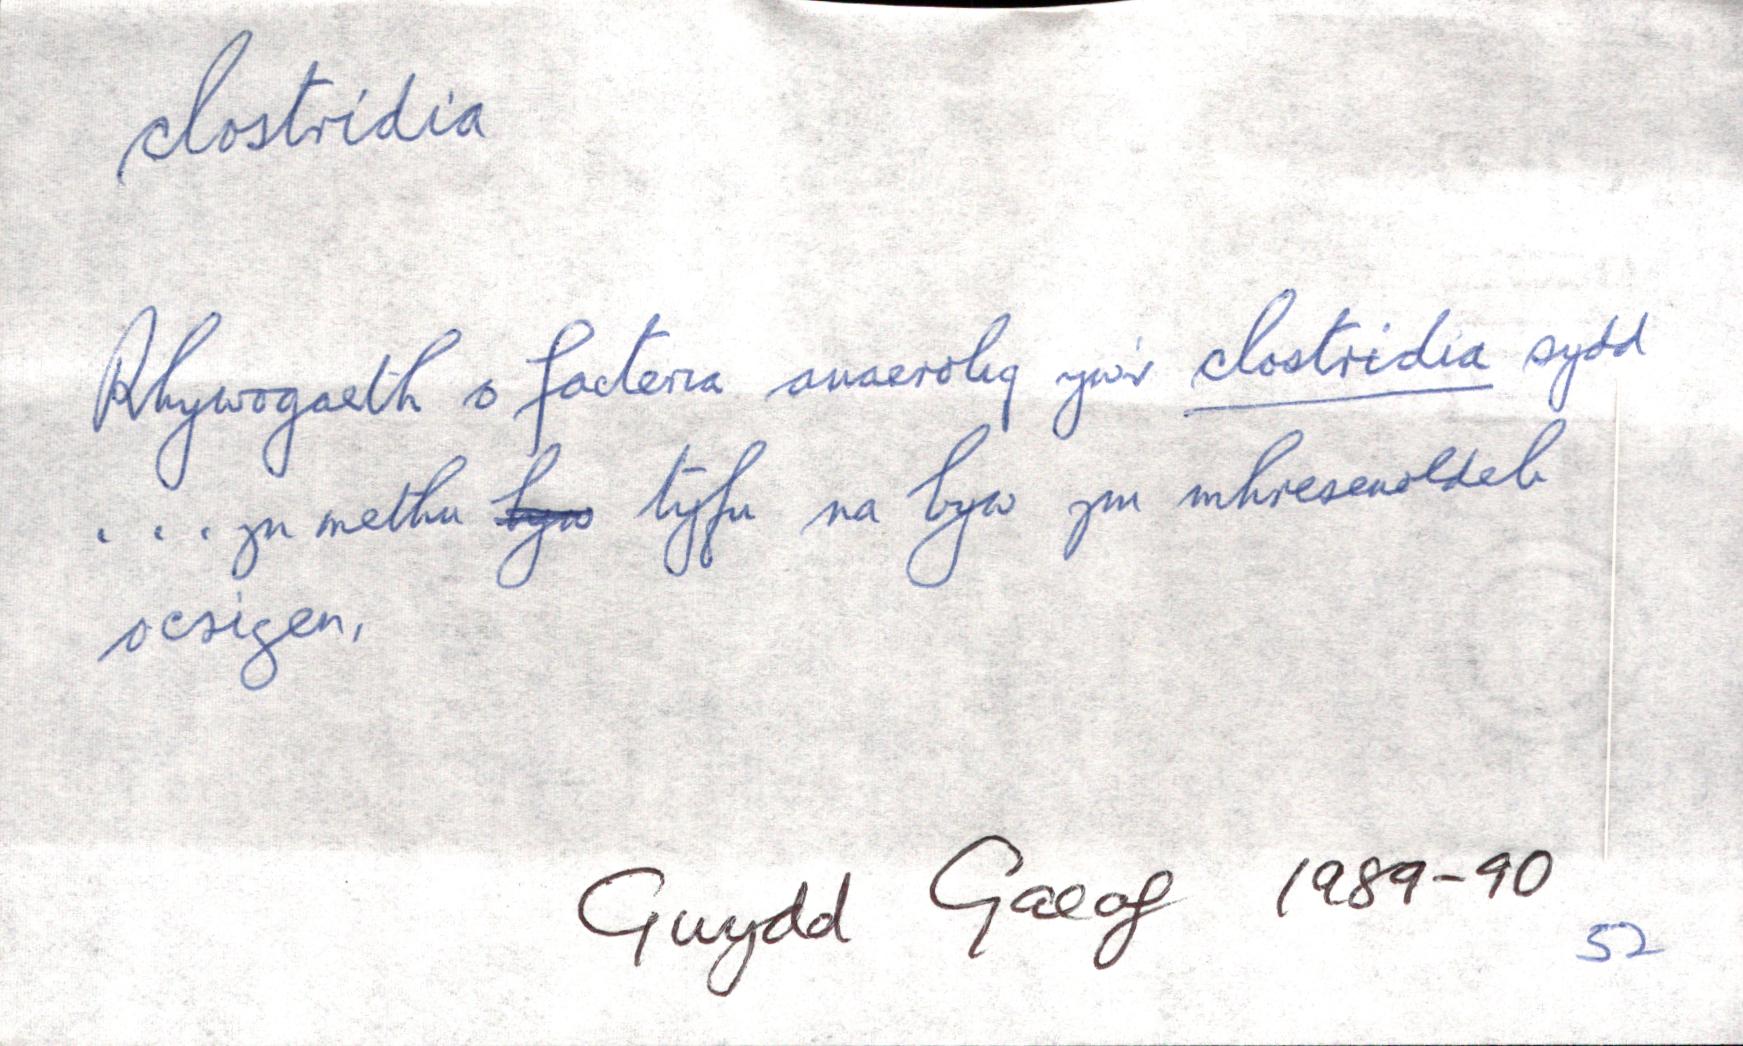 clostridia
Rhywogaeth o facteria anaerobig yw'r clostridia sydd
. . . yn methu byw tyfu na byw ym mhresenoldeb
ocsigen,
Gwydd Gaeaf 1989-90
52